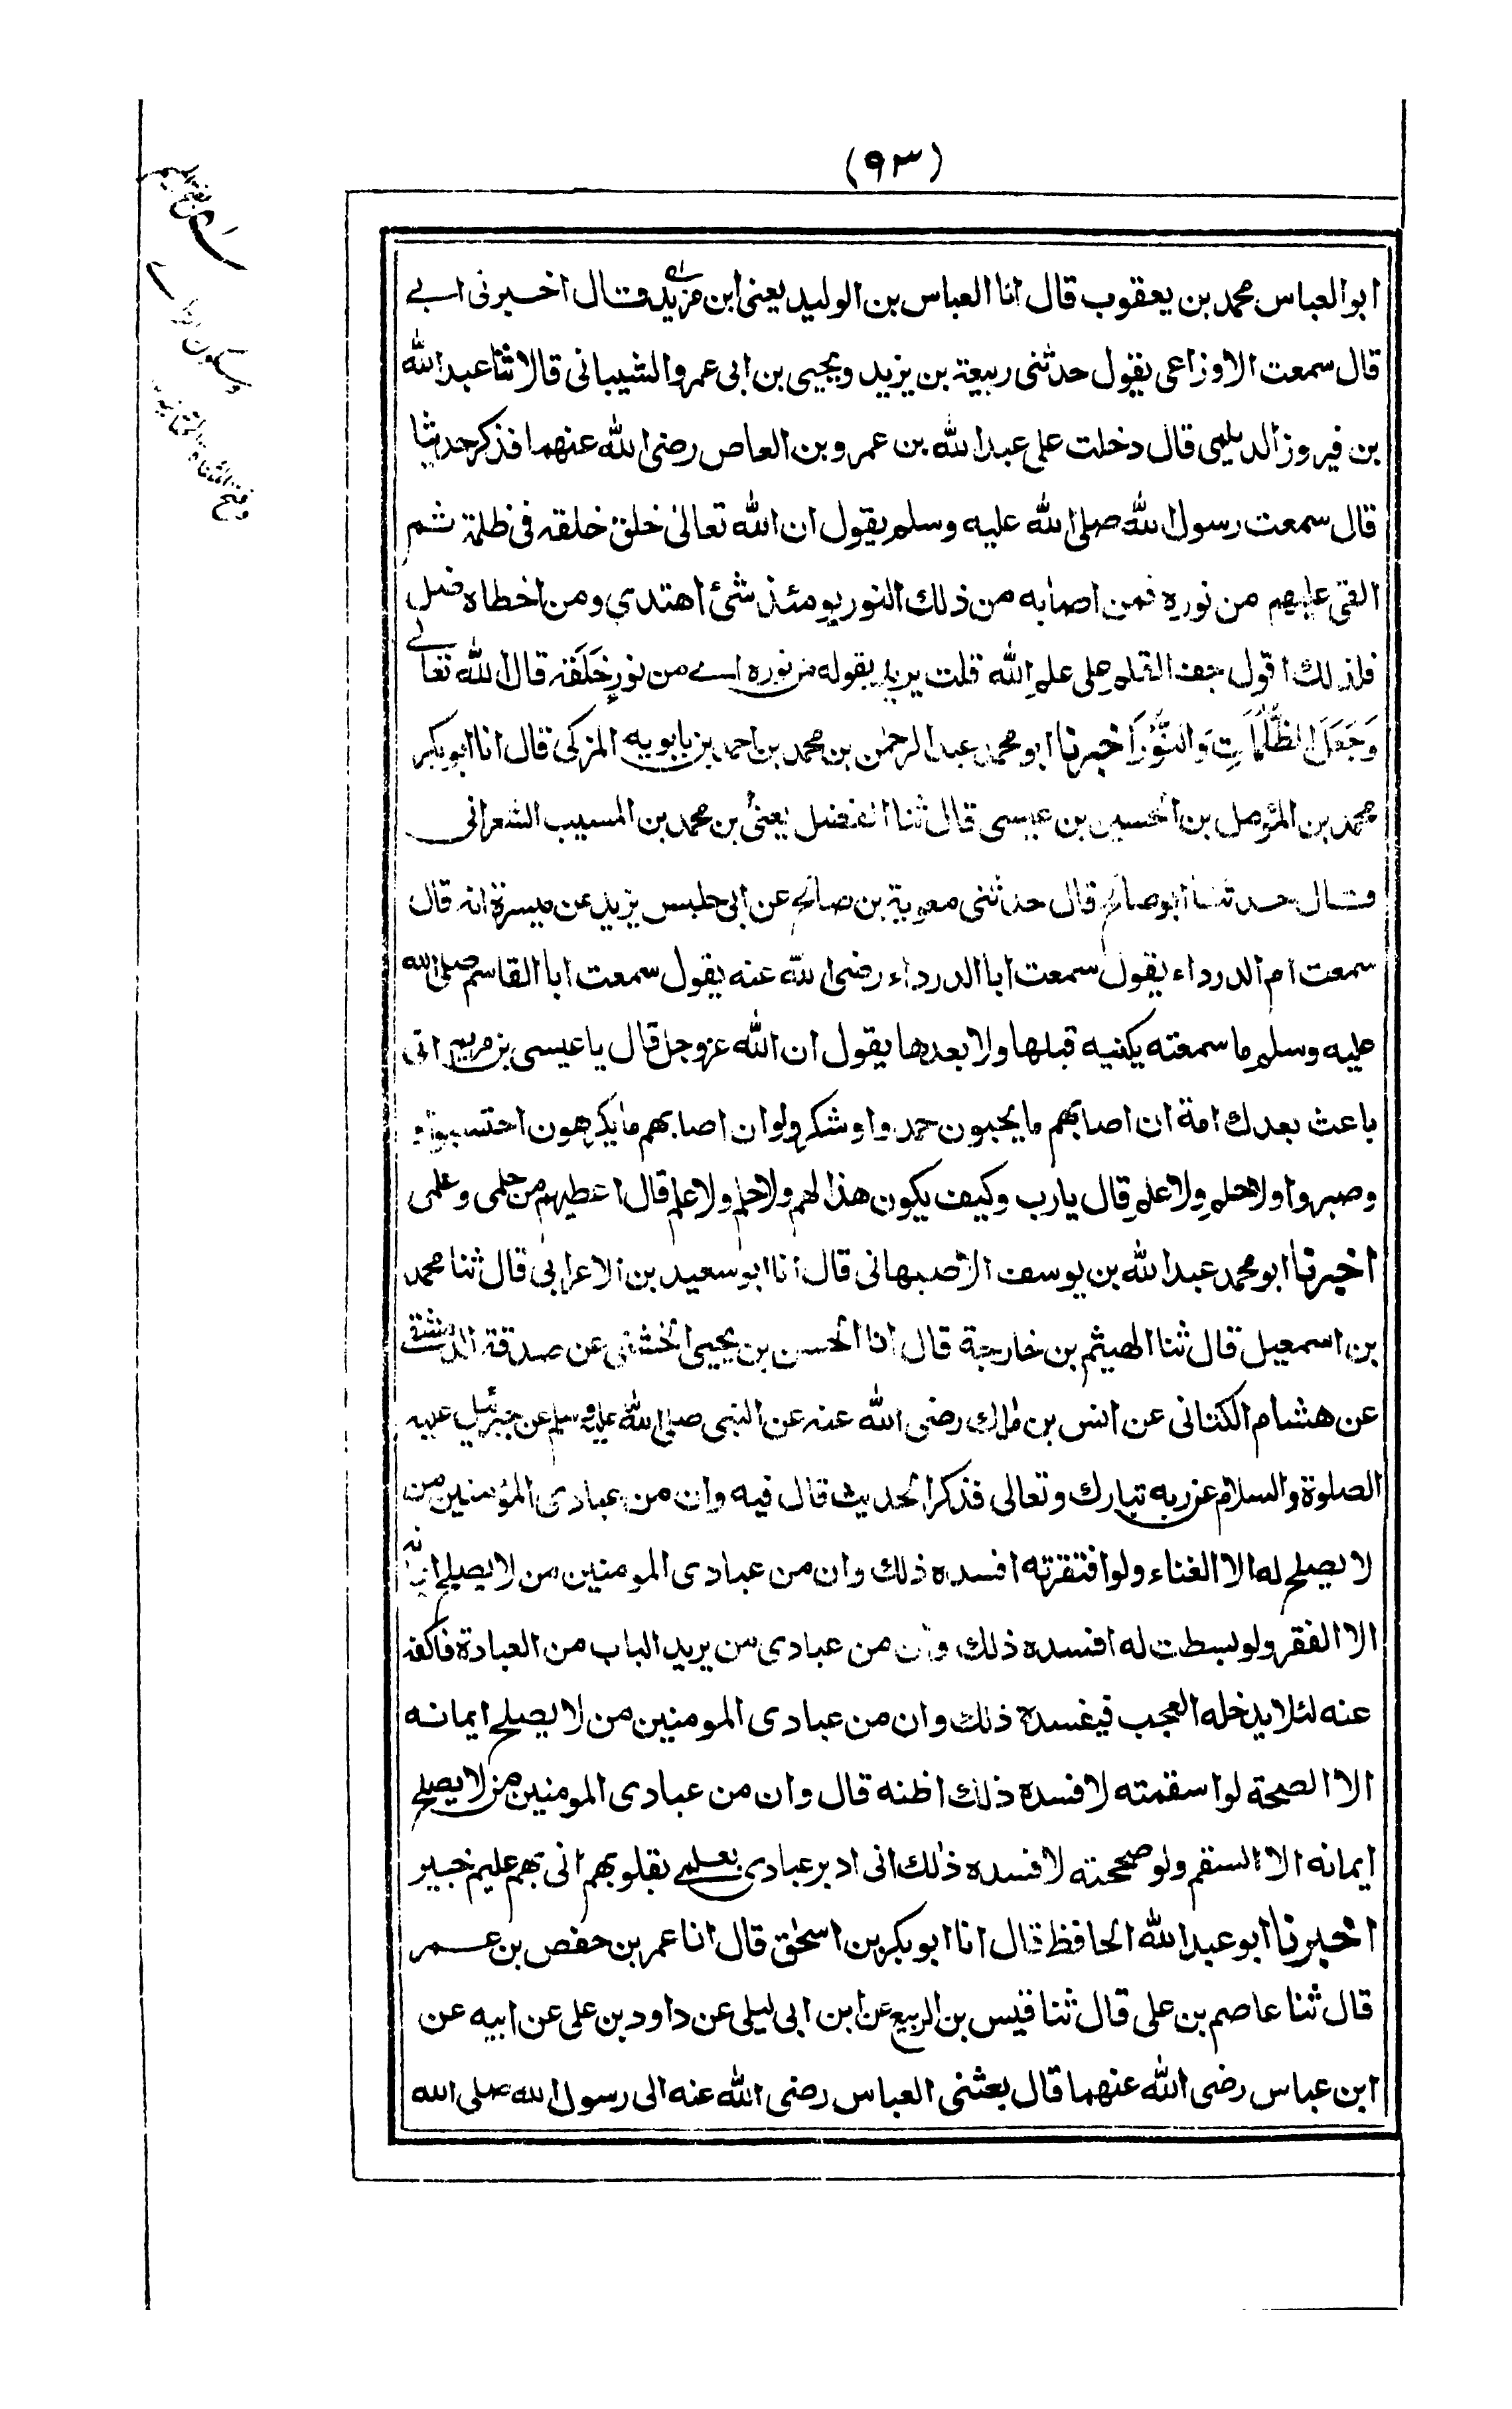 (٩٣)
ابوالعباس محمد بن يعقوب قال انا العباس بن الوليد يعنى ابن مزيد قال اخبرنى ابى
قال سمعت الاوزاعى يقول حدثنى ربيعة بن يزيد ويحيى بن ابى عمرو الشيبانى قالا ثنا عبد الله
بن فيروز الديلمى قال دخلت على عبد الله بن عمرو بن العاص رضى الله عنهما فذكر حديثا
قال سمعت رسول الله صلى الله عليه وسلم يقول ان الله تعالى خلق خلقه فى ظلمة ثم
القى عليهم من نوره فمن اصابه من ذلك النور يومئذ شئ اهتدى ومن اخطاه ضل
فلذلك اقول جف القلم على علم الله قلت يريد بقوله من نوره اے من نور خَلَقَه قال الله تعالى
وَجَعَلَ الظُّلُمَاتِ وَالنُّوْرَ اخبرنا ابو محمد عبد الرحمن بن محمد بن احمد بن بابويه المزكى قال انا ابوبكر
محمد بن المؤمل بن الحسين بن عيسى قال ثنا الفضل يعنى بن محمد بن المسيب الشعرانى
قال حدثنا ابو صالح قال حدثنى معوية بن صالح عن ابى حلبس يزيد عن ميسرة انه قال
سمعت ام الدرداء يقول سمعت ابا الدرداء رضى الله عنه يقول سمعت ابا القاسم صلى الله
عليه وسلم ما سمعته يكنيه قبلها ولا بعدها يقول ان الله عزوجل قال يا عيسى بن مريم انى
باعث بعدك امة ان اصابهم ما يحبون حمدوا وشكروا وان اصابهم ما يكرهون احتسبوا
وصبروا ولا حلم ولا علم قال يا رب وكيف يكون هذا لهم ولا حلم ولا علم قال اعطيهم من حلمى وعلمى
اخبرنا ابو محمد عبد الله بن يوسف الاصبهانى قال انا ابو سعيد بن الاعرابى قال ثنا محمد
بن اسمعيل قال ثنا الهيثم بن خارجة قال انا الحسن بن يحيى الخشنى عن صدقة الدمشقى
عن هشام الكنانى عن انس بن مالك رضى الله عنه عن النبى صلى الله عليه وسلم عن جبرئيل عليه
الصلوة والسلام عن ربه تبارك وتعالى فذكر الحديث قال فيه وان من عبادى المؤمنين من
لا يصلح له الا الغناء ولو افتقرته افسده ذلك وان من عبادى المومنين من لا يصلح ايمانه
الا الفقر ولو بسطت له افسده ذلك وان من عبادى من يريد الباب من العبادة فاكفه
عنه لئلا يدخله العجب فيفسده ذلك وان من عبادى المومنين من لا يصلح ايمانه
الا الصحة لو اسقمته لافسده ذلك اظنه قال وان من عبادى المومنين من لا يصلح
ايمانه الا السقم ولو صححته لافسده ذلك انى ادبر عبادى بعلمى بقلوبهم انى بهم عليم خبير
اخبرنا ابو عبد الله الحافظ قال انا ابو بكر بن اسحق قال انا عمر بن حفص بن عمر
قال ثنا عاصم بن على قال ثنا قيس بن الربيع عن ابن ابى ليلى عن داود بن على عن ابيه عن
ابن عباس رضى الله عنهما قال بعثنى العباس رضى الله عنه الى رسول الله صلى الله